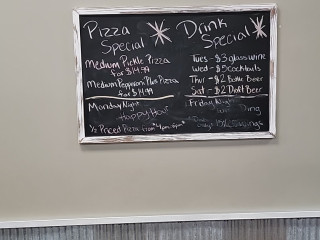 Pizza
Special
Medium Pickle Pizza
for $14.99
Medium Pepperoni Plus Pizza
for $14.99
Monday Night
Happy Hour
½ Priced Pizza from
Drink
Special
Tues - $3 glass wine
Wed - $5 cocktails
Thur - $2 Bottle Beer
Sat - $2 Draft Beer
Friday Night